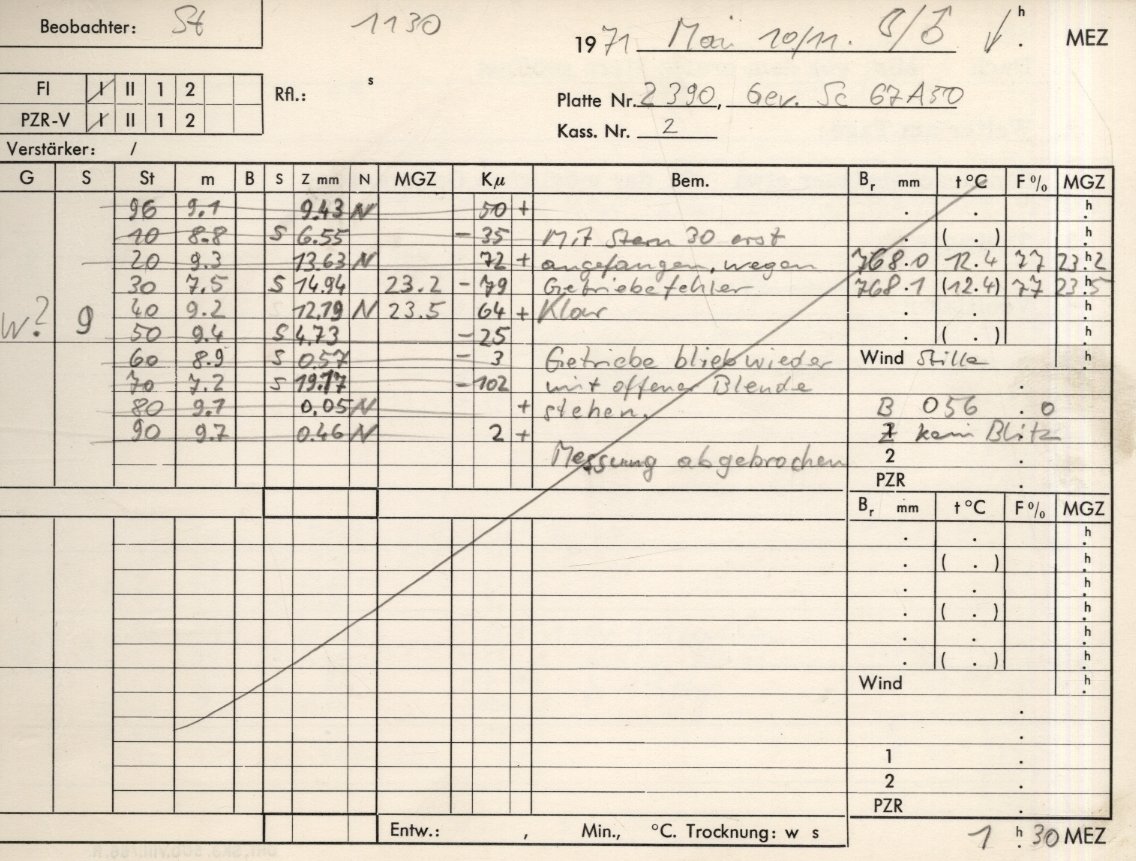 Beobachter: St 1130 1971 Mai 10/11. h . MEZ
FI I II 1 2 Rfl.: s
Platte Nr. 2390, Gev. Sc 67A50
PZR-V I II 1 2 Kass. Nr. 2
Verstärker: /
G S St m B S Z mm N MGZ Kμ Bem. Br mm t °C F % MGZ
96 9.1 9.43 N 50 + . . h
10 8.8 S 6.55 - 35 Mit Stern 30 erst . ( . )
20 9.3 13.63 N 72 + angefangen, wegen 768.0 12.4 77 23.2 h
30 7.5 S 14.94 23.2 - 79 Getriebefehler 768.1 (12.4) 77 23.5 h
w? 9 40 9.2 12.19 N 23.5 64 + Klar . . h
50 9.4 S 4.73 - 25 . ( . )
60 8.9 S 0.57 - 3 Getriebe blieb wieder Wind Stille h
70 7.2 S 19.17 - 102 mit offener Blende .
80 9.7 0,05 N + stehen. B 056 . 0
90 9.7 0.46 N 2 + kein Blitz
Messung abgebrochen 2 .
PZR .
Br mm t °C F % MGZ
. . h
. ( . ) h
. . h
. ( . ) h
. . h
. ( . ) h
Wind h
.
.
1 .
2 .
PZR .
Entw.: , Min., °C. Trocknung: w s 1 h 30 MEZ